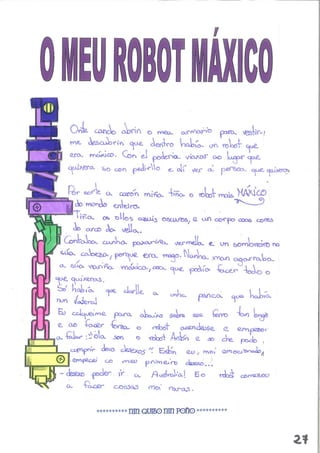 O MEU ROBOT MÁXICO
Onte cando abrin o meu armario para vestir-
me descubrin que dentro había un robot que
era máxico. Con el podería viaxar ao lugar que
quixera so con pedirllo e alí ver a persoa que quixera
Por sorte a carón miña tiña o robot mais MÁXICO
do mundo enteiro.
Tiña os ollos azuis escuros, e un corpo coas cores
do arco da vella.
Contaba cunha paxariña vermella e un sombreiro na
súa cabeza, porque era mago. Nunha man agarraba
a súa variña máxica, coa que podía facer todo o
que quixeras.
Só había que darlle a unha panca que había
nun lateral
Eu calqueime para abaixo sobre ese ferro tan longo
e ao facer forza o robot acendeuse e empezou
a falar: "Ola son o robot Antón e so che podo
cumprir dous desexos". Entón eu, moi emocionado,
empecei co meu primeiro desexo...
- desexo poder ir a Australia! E o robot comezou
a facer cousas moi raras.
********** NIN QUIÑO NIN POÑO **********
27